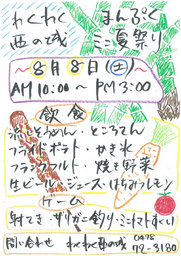 わくわく まんぷく
西の城 ミニ夏祭り
〜8月8日(土)〜
AM10:00〜PM3:00
飲食
流しそうめん・ところてん
フライドポテト・かき氷
フランクフルト・焼き野菜
生ビール・ジュース・はちみつレモン
ゲーム
射てき・ザリガニ釣り・ミニトマトすくい
問い合わせ わくわく西の城
0478
72-3180